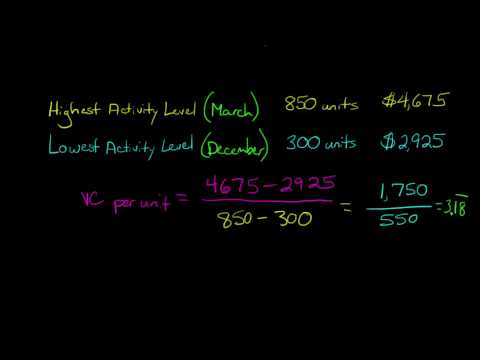 Highest Activity Level (March) 850 units $4,675
Lowest Activity Level (December) 300 units $2,925
VC per unit = 4675-2925 / 850-300 = 1,750 / 550 = 3.1̅8̅